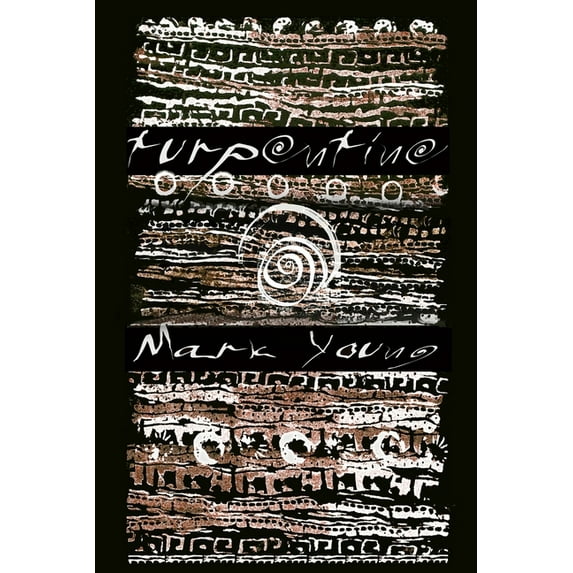 turpentine
Mark Young